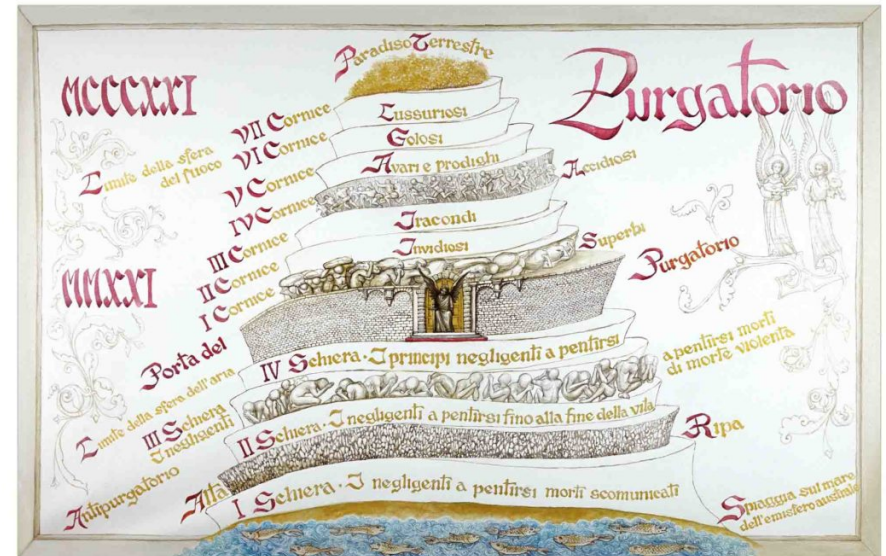 Paradiso Terrestre
Purgatorio
MCCCXXI
VII Cornice
Lussuriosi
Limite della sfera
del fuoco
VI Cornice
Golosi
V Cornice
Avari e prodighi
IV Cornice
Accidiosi
III Cornice
Iracondi
II Cornice
Invidiosi
I Cornice
Superbi
MMXXI
Porta del
Purgatorio
IV Schiera · I principi negligenti a pentirsi
Limite della sfera dell'aria
III Schiera
I negligenti
a pentirsi morti
di morte violenta
II Schiera · I negligenti a pentirsi fino alla fine della vita
Antipurgatorio
Alta
Ripa
I Schiera · I negligenti a pentirsi morti scomunicati
Spiaggia sul mare
dell'emisfero australe